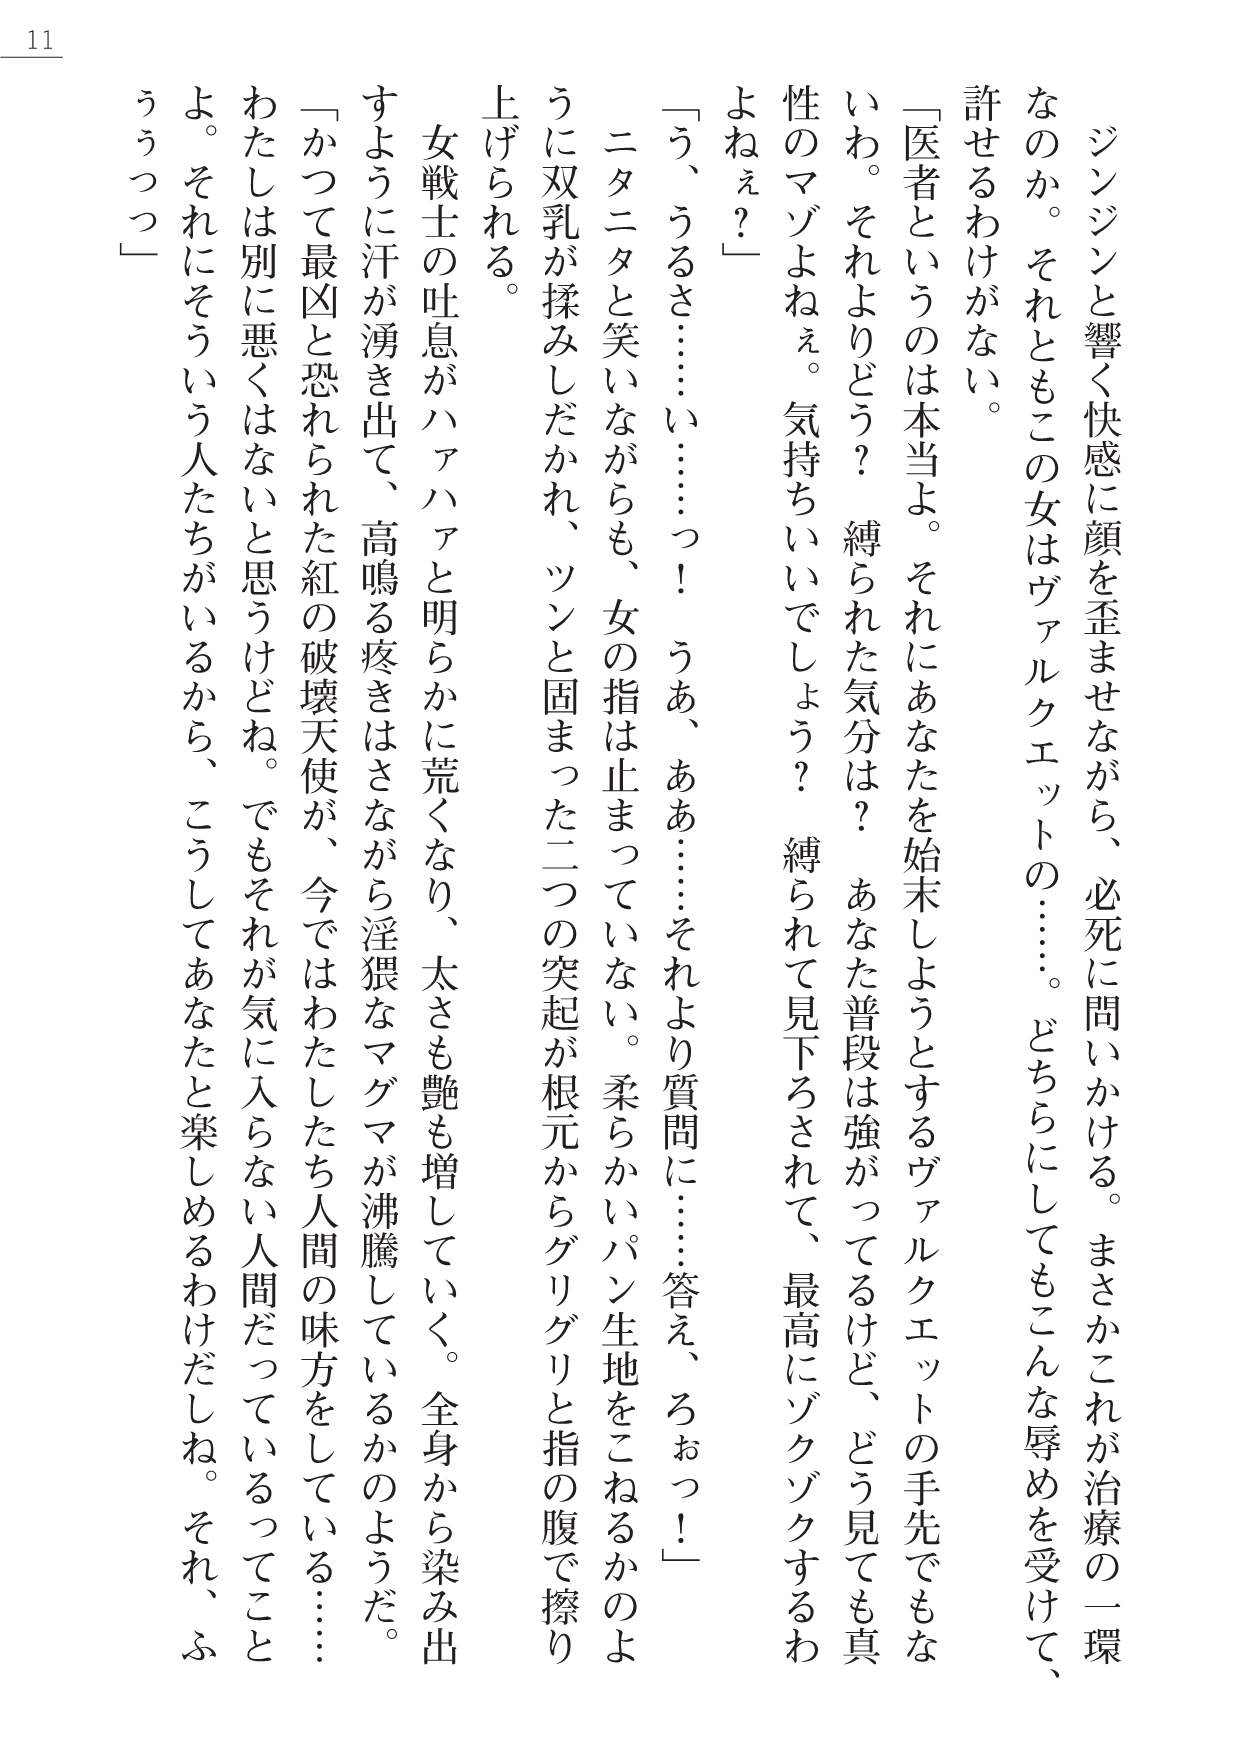 11
　ジンジンと響く快感に顔を歪ませながら、必死に問いかける。まさかこれが治療の一環
なのか。それともこの女はヴァルクエットの……。どちらにしてもこんな辱めを受けて、
許せるわけがない。
「医者というのは本当よ。それにあなたを始末しようとするヴァルクエットの手先でもな
いわ。それよりどう？　縛られた気分は？　あなた普段は強がってるけど、どう見ても真
性のマゾよねぇ。気持ちいいでしょう？　縛られて見下ろされて、最高にゾクゾクするわ
よねぇ？」
「う、うるさ……い……っ！　うあ、ああ……それより質問に……答え、ろぉっ！」
　ニタニタと笑いながらも、女の指は止まっていない。柔らかいパン生地をこねるかのよ
うに双乳が揉みしだかれ、ツンと固まった二つの突起が根元からグリグリと指の腹で擦り
上げられる。
　女戦士の吐息がハァハァと明らかに荒くなり、太さも艶も増していく。全身から染み出
すように汗が湧き出て、高鳴る疼きはさながら淫猥なマグマが沸騰しているかのようだ。
「かつて最凶と恐れられた紅の破壊天使が、今ではわたしたち人間の味方をしている……
わたしは別に悪くはないと思うけどね。でもそれが気に入らない人間だっているってこと
よ。それにそういう人たちがいるから、こうしてあなたと楽しめるわけだしね。それ、ふ
ぅぅっっ」